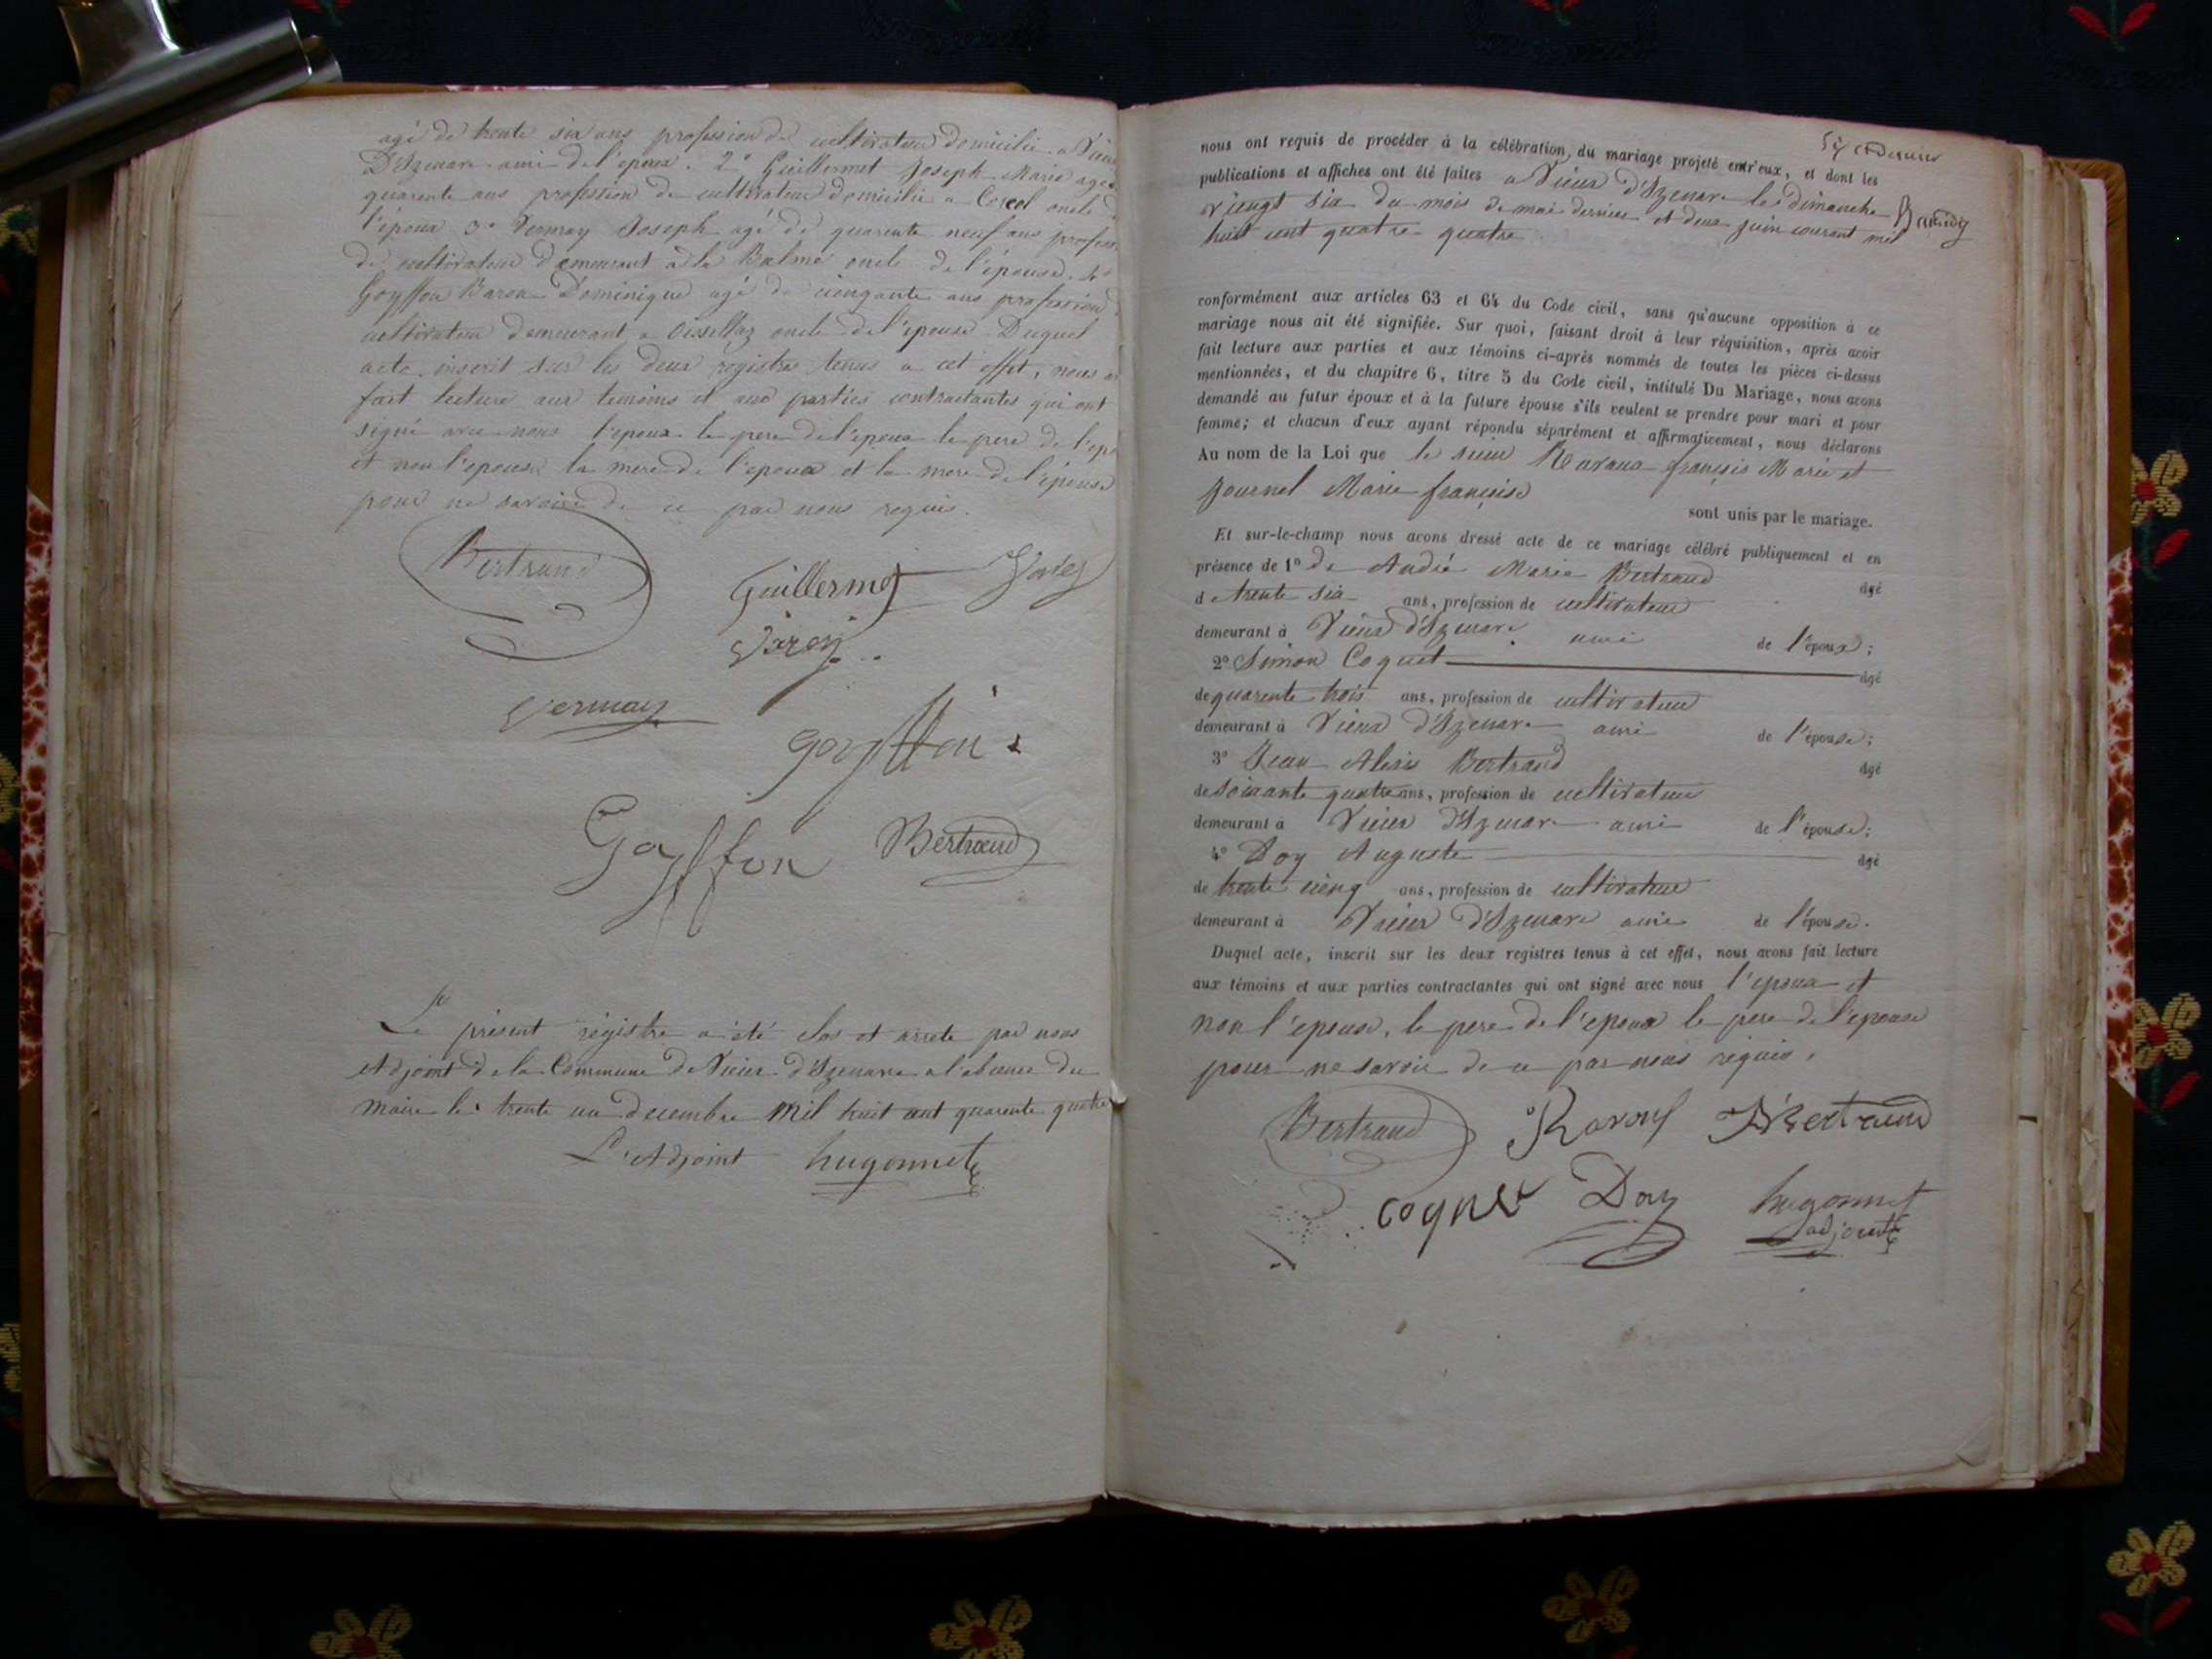 agé de trente six ans profession de cultivateur domicilié a Vieux
D'Izenave ami de l'epoux. 2° Guillermet Joseph Marie agé
quarente ans profession de cultivateur domicilié a Corcel oncle
l'époux 3° Vermay Joseph agé de quarente neuf ans profess
de cultivateur demeurant à la Balme oncle de l'épouse. 4°
Goyffon Baron Dominique agé de cinquante ans profession
cultivateur demeurant a oncle de l'epouse Duquel
acte inscrit sur les deux registres tenus a cet effet, nous
fait lecture aux temoins et aux parties contractantes qui ont
signé avec nous l'epoux le pere de l'epoux le pere de l'epo
et non l'epouse la mere de l'epoux et la mere de l'épouse
pour ne savoir de ce par nous requis.
Bertrand Guillermet
Vermay
goyffon
Goyffon Bertrand
Le présent régistre a été clos et arreté par nous
Adjoint de la Commune De Vieux d'Izenave a l'absence du
maire le trente un decembre mil huit cent quarente quatre
L'Adjoint hugonnet
nous ont requis de procéder à la célébration du mariage projeté entr'eux, et dont les
publications et affiches ont été faites a Vieux d'Izenave les dimanche
vingt six du mois de mai dernier et deux juin courant mil
huit cent quatre quatre
conformément aux articles 63 et 64 du Code civil, sans qu'aucune opposition à ce
mariage nous ait été signifiée. Sur quoi, faisant droit à leur réquisition, après avoir
fait lecture aux parties et aux témoins ci-après nommés de toutes les pièces ci-dessus
mentionnées, et du chapitre 6, titre 5 du Code civil, intitulé Du Mariage, nous avons
demandé au futur époux et à la future épouse s'ils veulent se prendre pour mari et pour
femme; et chacun d'eux ayant répondu séparément et affirmativement, nous déclarons
Au nom de la Loi que le sieur françois Marie et
Journel Marie françoise
sont unis par le mariage.
Et sur-le-champ nous avons dressé acte de ce mariage célébré publiquement et en
présence de 1° de André Marie Bertrand agé
d trente six ans, profession de cultivateur
demeurant à Vieux d'Izenave ami de l'époux;
2° Simon Coquet agé
de quarente trois ans, profession de cultivateur
demeurant à Vieux d'Izenave ami de l'épouse;
3° Jean Alexis Bertrand agé
de soixante quatre ans, profession de cultivateur
demeurant à Vieux d'Izenave ami de l'épouse;
4° Doy Auguste agé
de trente cinq ans, profession de cultivateur
demeurant à Vieux d'Izenave ami de l'épouse.
Duquel acte, inscrit sur les deux registres tenus à cet effet, nous avons fait lecture
aux témoins et aux parties contractantes qui ont signé avec nous l'epoux et
non l'epouse, le pere de l'epoux le pere de l'epouse
pour ne savoir de ce par nous requis.
Bertrand Bertrand
Doy hugonnet
adjoint